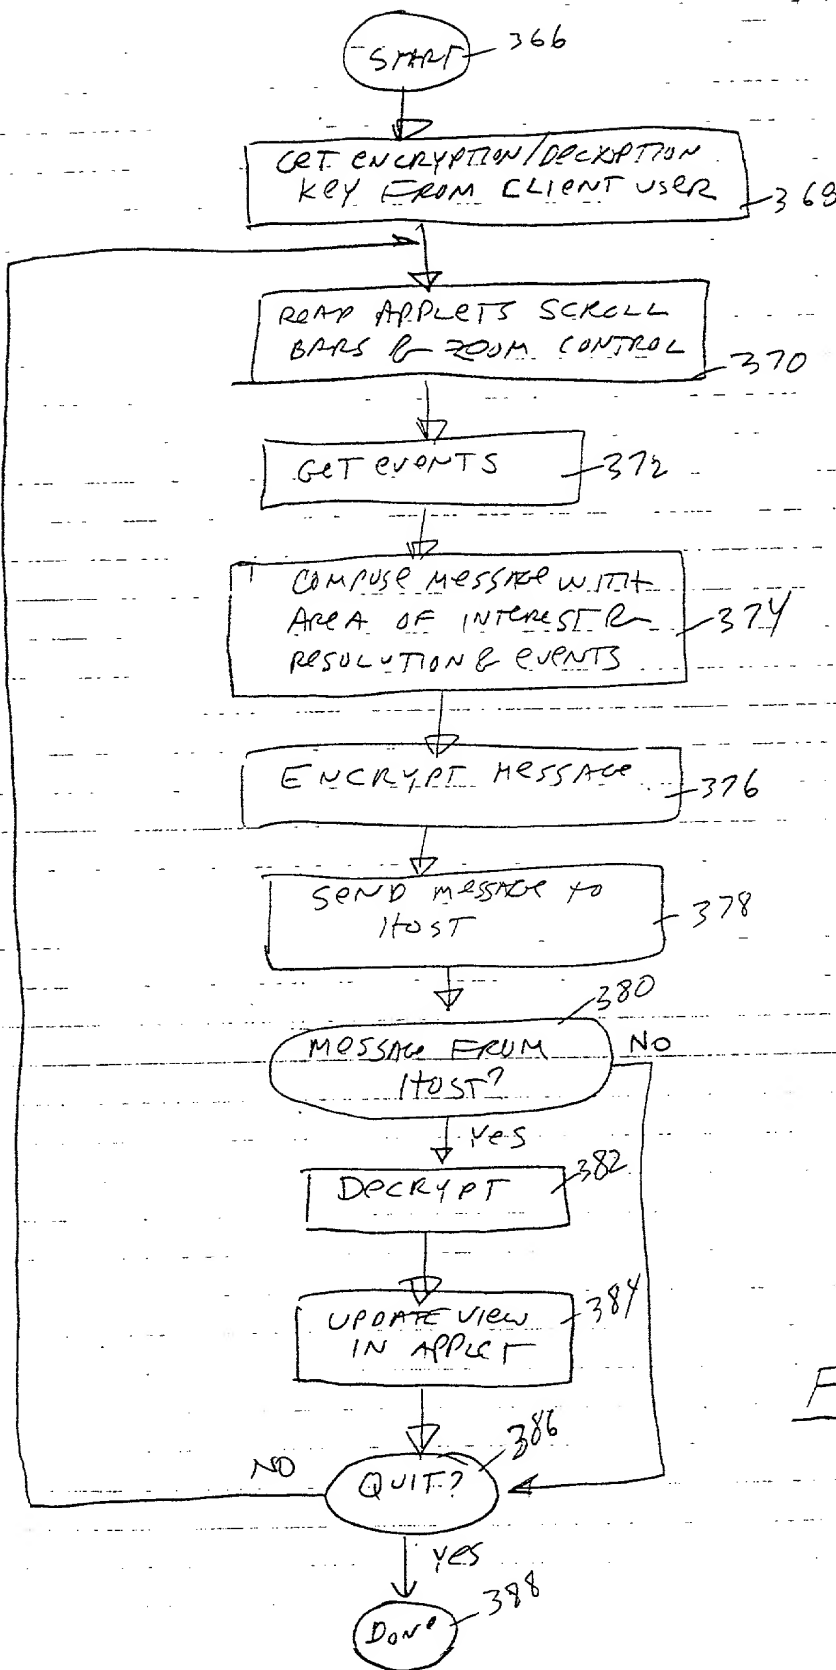 START
366
GET ENCRYPTION/DECRYPTION
KEY FROM CLIENT USER
368
READ APPLETS SCROLL
BARS & ZOOM CONTROL
370
GET EVENTS
372
COMPOSE MESSAGE WITH
AREA OF INTEREST &
RESOLUTION & EVENTS
374
ENCRYPT MESSAGE
376
SEND MESSAGE TO
HOST
378
380
MESSAGE FROM
HOST?
NO
Yes
DECRYPT
382
UPDATE VIEW
IN APPLET
384
386
NO
QUIT?
yes
DONE
388
F